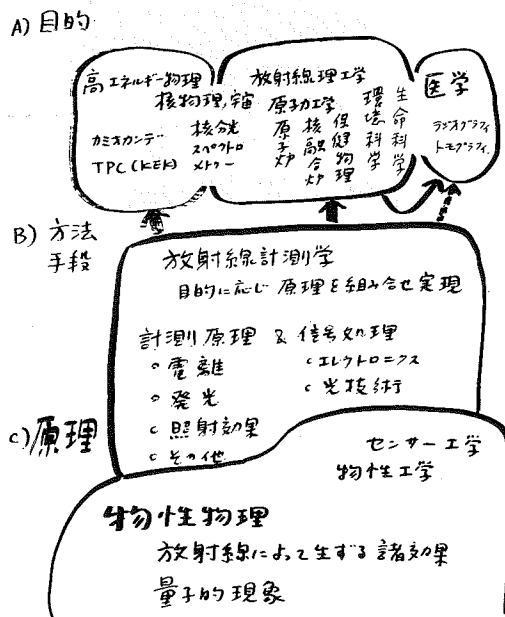 A) 目的
高エネルギー物理
核物理,宇宙
カミオカンデ
TPC(KEK)
核分光
スペクトロ
メトリー
放射線理工学
原子力工学
原子炉
核融合炉
保健物理
環境科学
生命科学
医学
ラジオグラフィ
トモグラフィ
B) 方法
手段
放射線計測学
目的に応じ 原理を組み合せ実現
計測原理 & 信号処理
○ 電離
○ 発光
○ 照射効果
○ その他
○ エレクトロニクス
○ 光技術
C) 原理
センサー工学
物性工学
物性物理
放射線によって生ずる諸効果
量子的現象